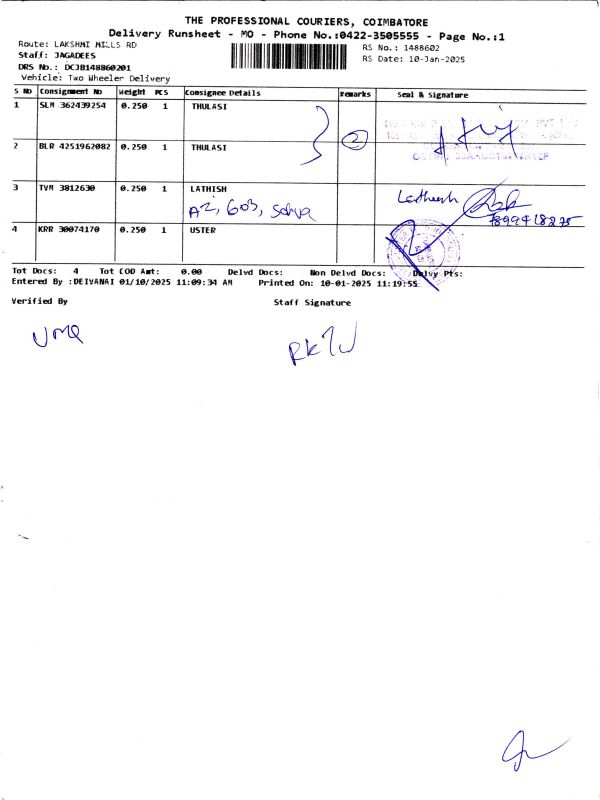 THE PROFESSIONAL COURIERS, COIMBATORE
Delivery Runsheet - MO - Phone No.:0422-3505555 - Page No.:1
Route: LAKSHMI MILLS RD
RS No.: 1488602
Staff: JAGADEES
RS Date: 10-Jan-2025
DRS No.: DCJB148860201
Vehicle: Two Wheeler Delivery
S NO Consignment No Weight PCS Consignee Details Remarks Seal & Signature
1 SLM 362439254 0.250 1 THULASI
2
2 BLR 4251962082 0.250 1 THULASI
3 TVM 3812630 0.250 1 LATHISH
A2, 603, Sahya
4 KRR 30074170 0.250 1 USTER
Tot Docs: 4 Tot COD Amt: 0.00 Delvd Docs: Non Delvd Docs: Delvy Pts:
Entered By :DEIVANAI 01/10/2025 11:09:34 AM Printed On: 10-01-2025 11:19:55
Verified By Staff Signature